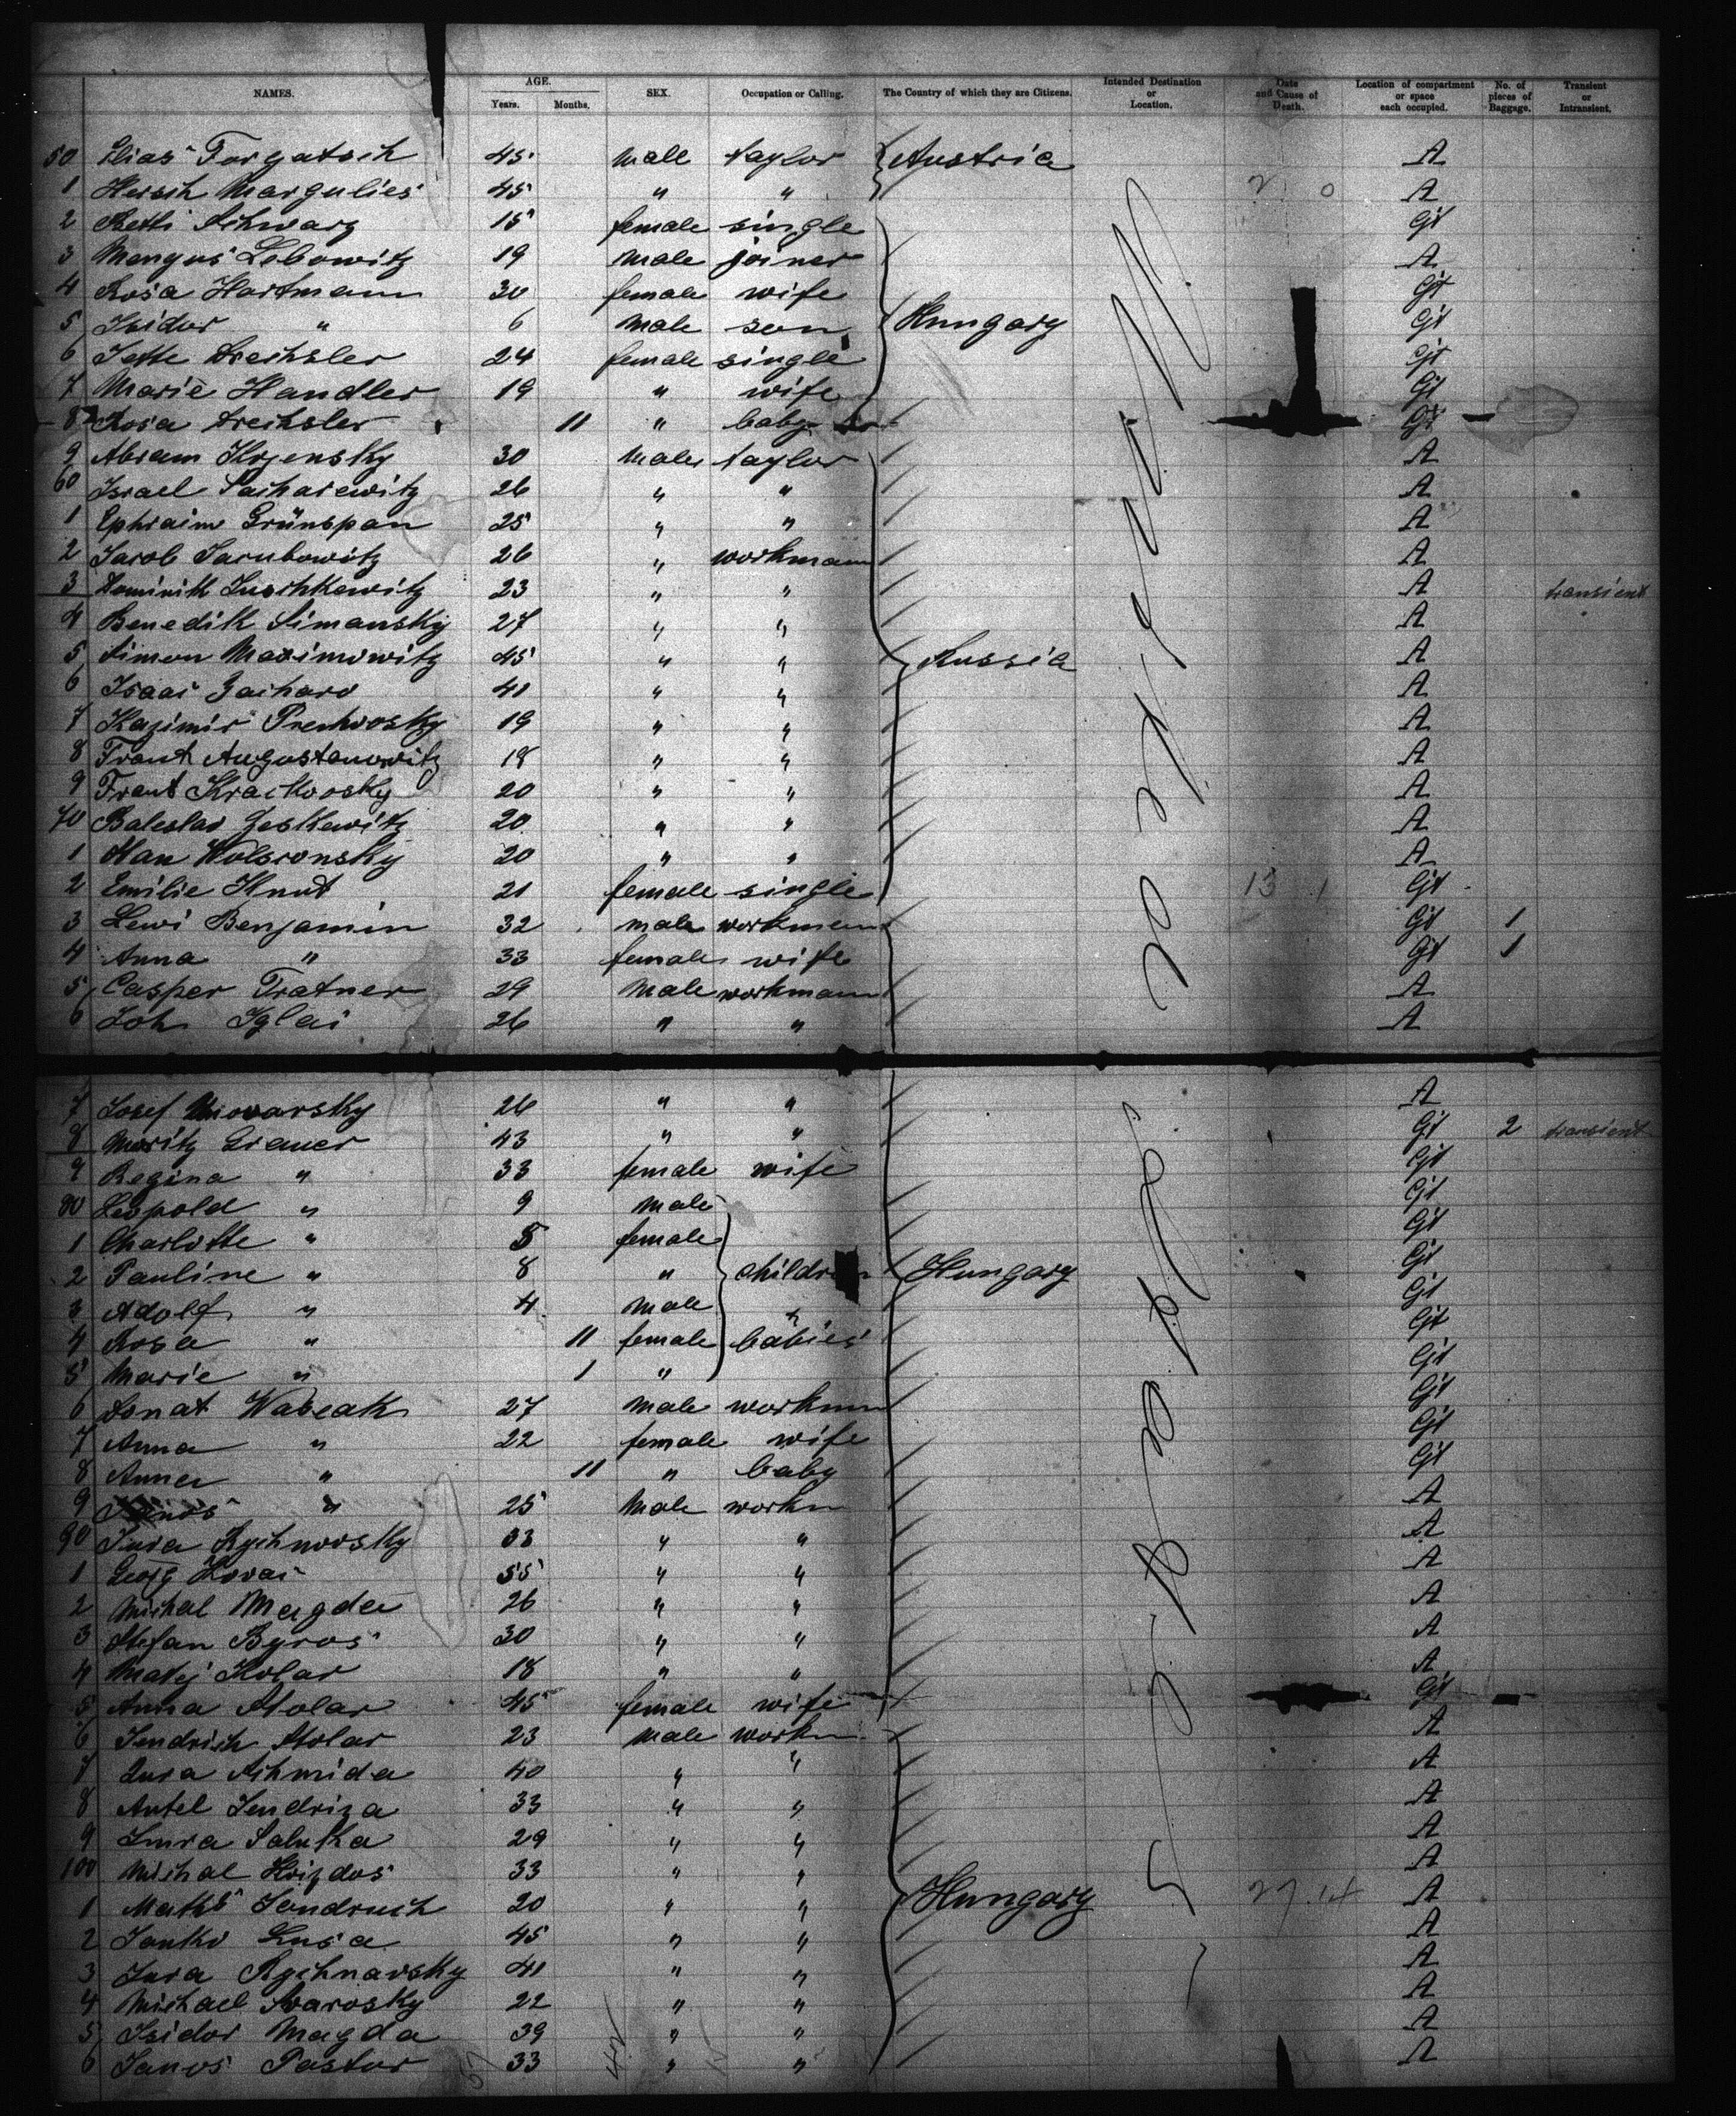 NAMES. AGE. Years. Months. SEX. Occupation or Calling. The Country of which they are Citizens. Intended Destination or Location. Date and Cause of Death. Location of compartment or space each occupied. No. of pieces of Baggage. Transient or Intransient.
50 Elias Torgatsch 45 male taylor Austria A
1 Hersch Margulies 45 " " A
2 Betti Schwarz 15 female single Gt
3 Mengus Lebowitz 19 male joiner A
4 Rosa Hartmann 30 female wife Gt
5 Isidor " 6 male son Hungary Gt
6 Jette Drechsler 24 female single Gt
7 Marie Handler 19 " wife Gt
8 Rosa Drechsler 11 " baby Gt
9 Abram 30 male taylor A
60 Israel Sacharewitz 26 " " A
1 Ephraim Grünspan 25 " " A
2 Jacob Jacubowitz 26 " workmann A
3 Dominik 23 " " A transient
4 Benedik Simansky 27 " " A
5 Simon Maximowitz 45 " " Russia A
6 Isaac Zacharo 41 " " A
7 Kazimir 19 " " A
8 Frank Augustanowitz 18 " " A
9 Frank 20 " " A
70 Boleslav 20 " " A
1 20 " " A
2 Emilie Knut 21 female single 13 1 Gt
3 Lewi Benjamin 32 male workmann Gt 1
4 Anna " 33 female wife Gt 1
5 Casper Tratner 29 male workmann A
6 Joh Iglai 26 " " A
7 Josef 26 " " A
8 Moritz Grauer 43 " " Gt 2 transient
9 Regina " 33 female wife Gt
80 Leopold " 9 male Gt
1 Charlotte " 5 female Gt
2 Pauline " 8 " children Hungary Gt
3 Adolf " 4 male " Gt
4 Rosa " 11 female babies Gt
5 Marie " 1 " Gt
6 Donat 27 male workmn Gt
7 Anna " 22 female wife Gt
8 Anna " 11 " baby Gt
9 Janos " 25 male workm A
90 Jura Rychnovsky 33 " " A
1 Georg Kovac 55 " " A
2 Michal Magda 26 " " A
3 Stefan Byros 30 " " A
4 Matej Kolar 18 " " A
5 Anna Stolar 45 female wife Gt
6 Jendrich Stolar 23 male workm A
7 Jura Schmida 40 " " A
8 Antel 33 " " A
9 29 " " A
100 Michal 33 " " A
1 Jendruch 20 " " Hungary 27.14 A
2 Janko Lusa 45 " " A
3 Jura Rychnavsky 41 " " A
4 Michael Svarosky 22 " " A
5 Isidor Magda 39 " " A
6 Janos Pastor 33 " " A